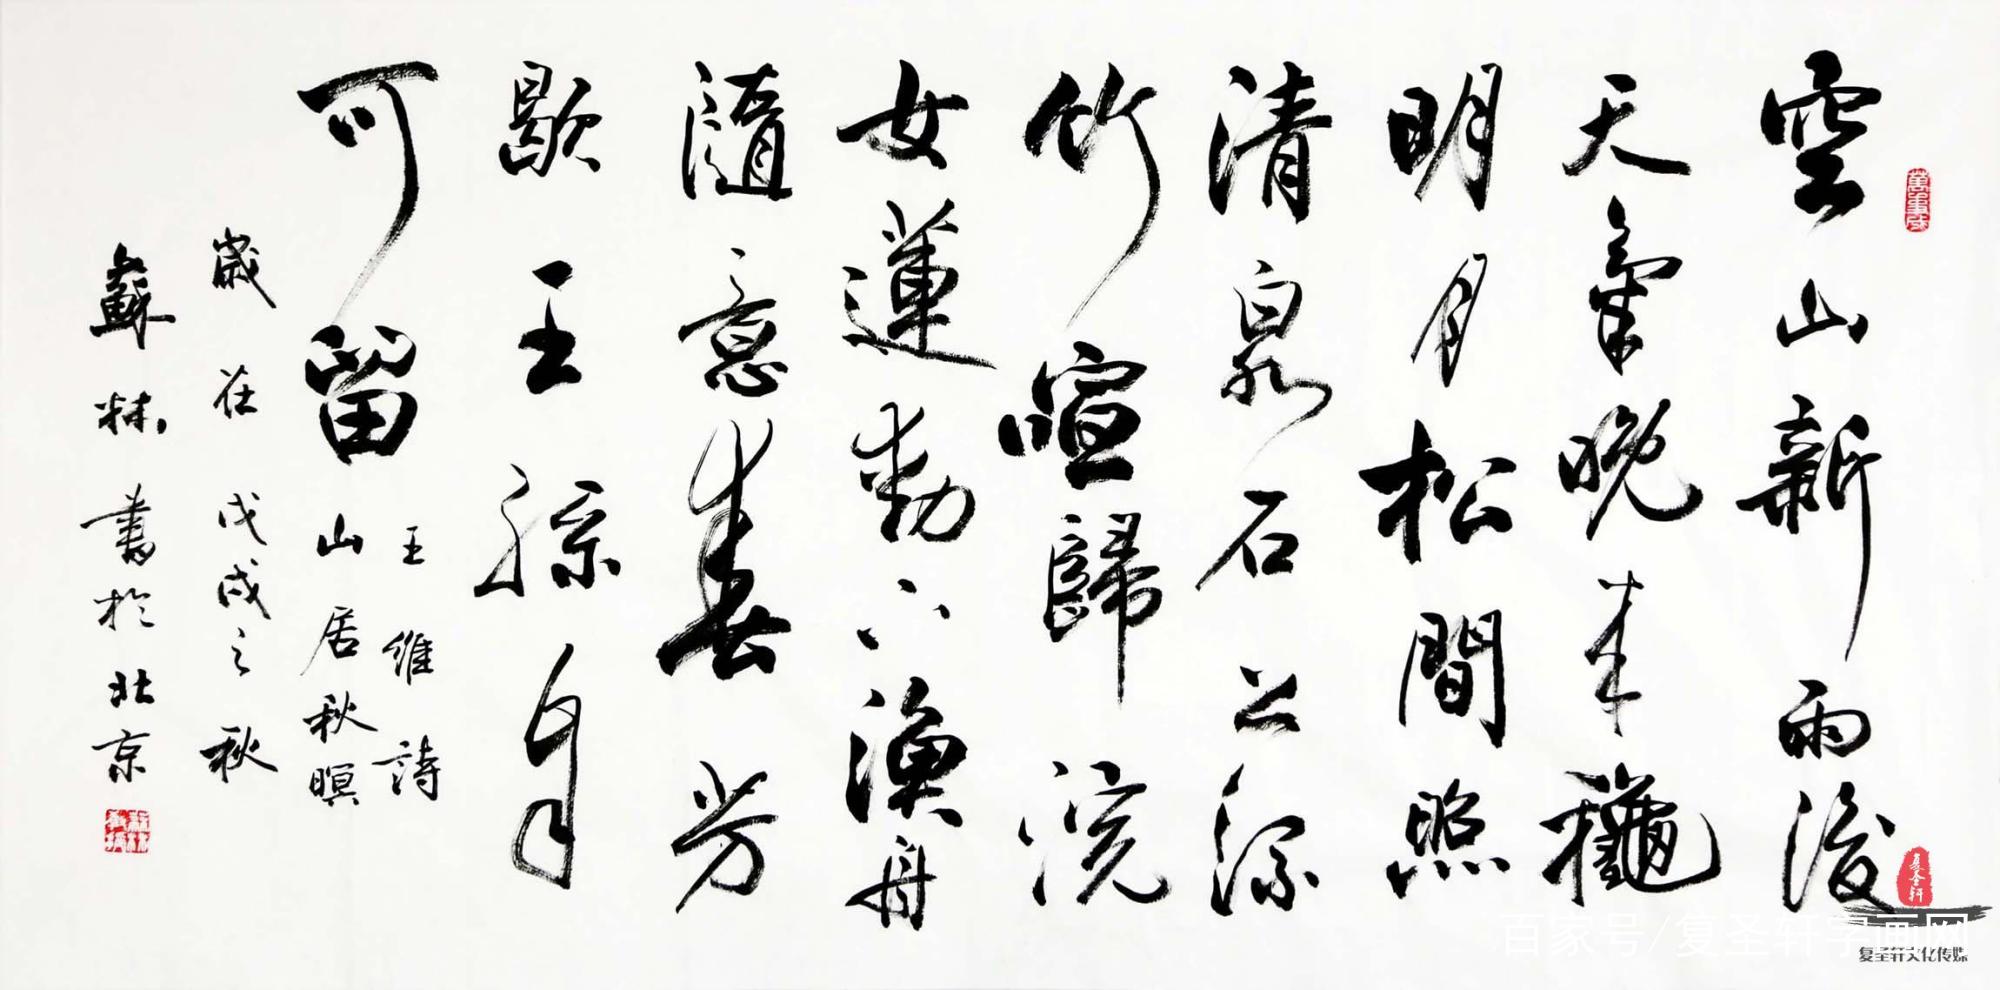 萬事成
空山新雨後
天氣晚來龝
明月松間照
清泉石上流
竹喧歸浣
女蓮動下漁舟
隨意春芳
歇王孫自
可留
王維詩
山居秋暝
歲在戊戌之秋
蘇林書於北京
复圣轩
百家号/复圣轩字画网
复圣轩文化传媒